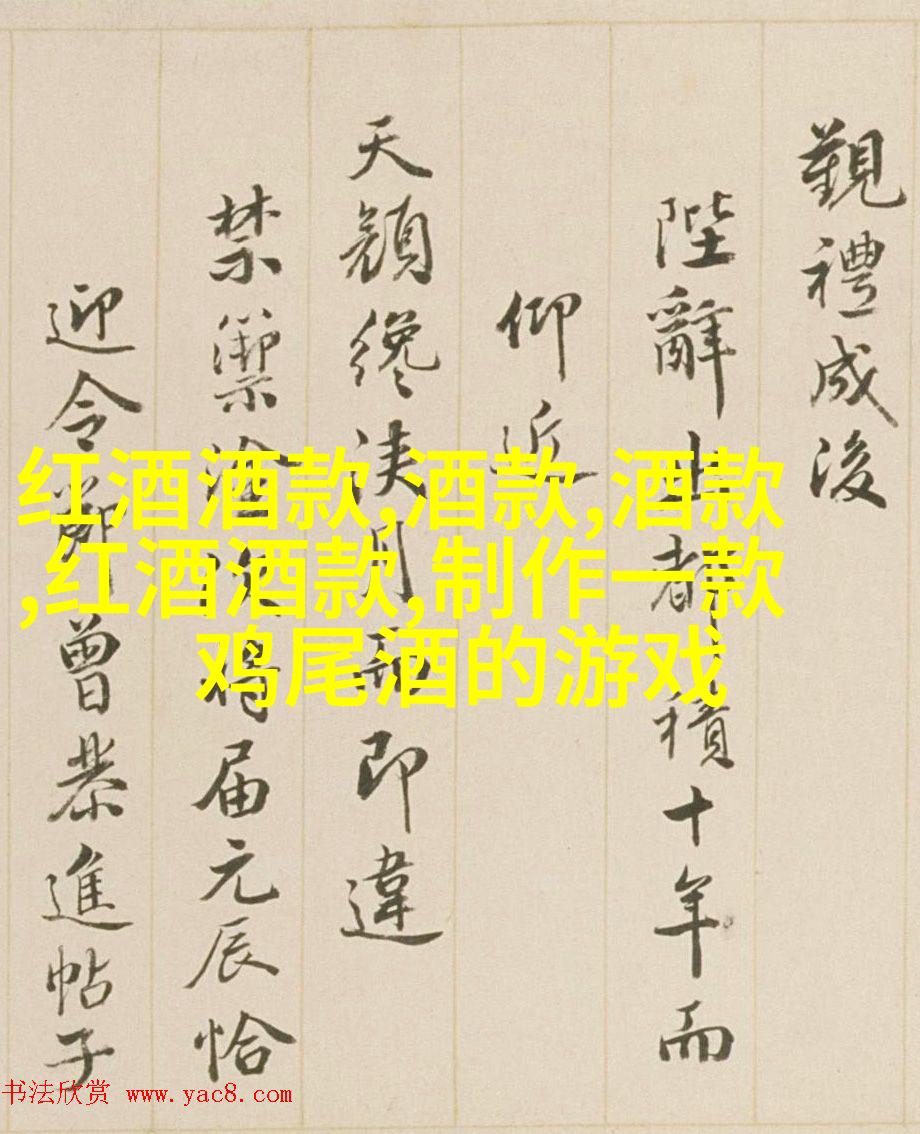 覲禮成後
陛辭出都積十年而
仰近
天顔纔浹月即違
禁籞塗次将届元辰恰
迎令節曾恭進帖子
红酒酒款,酒款,酒款
,红酒酒款,制作一款
鸡尾酒的游戏
书法欣赏 www.yac8.com